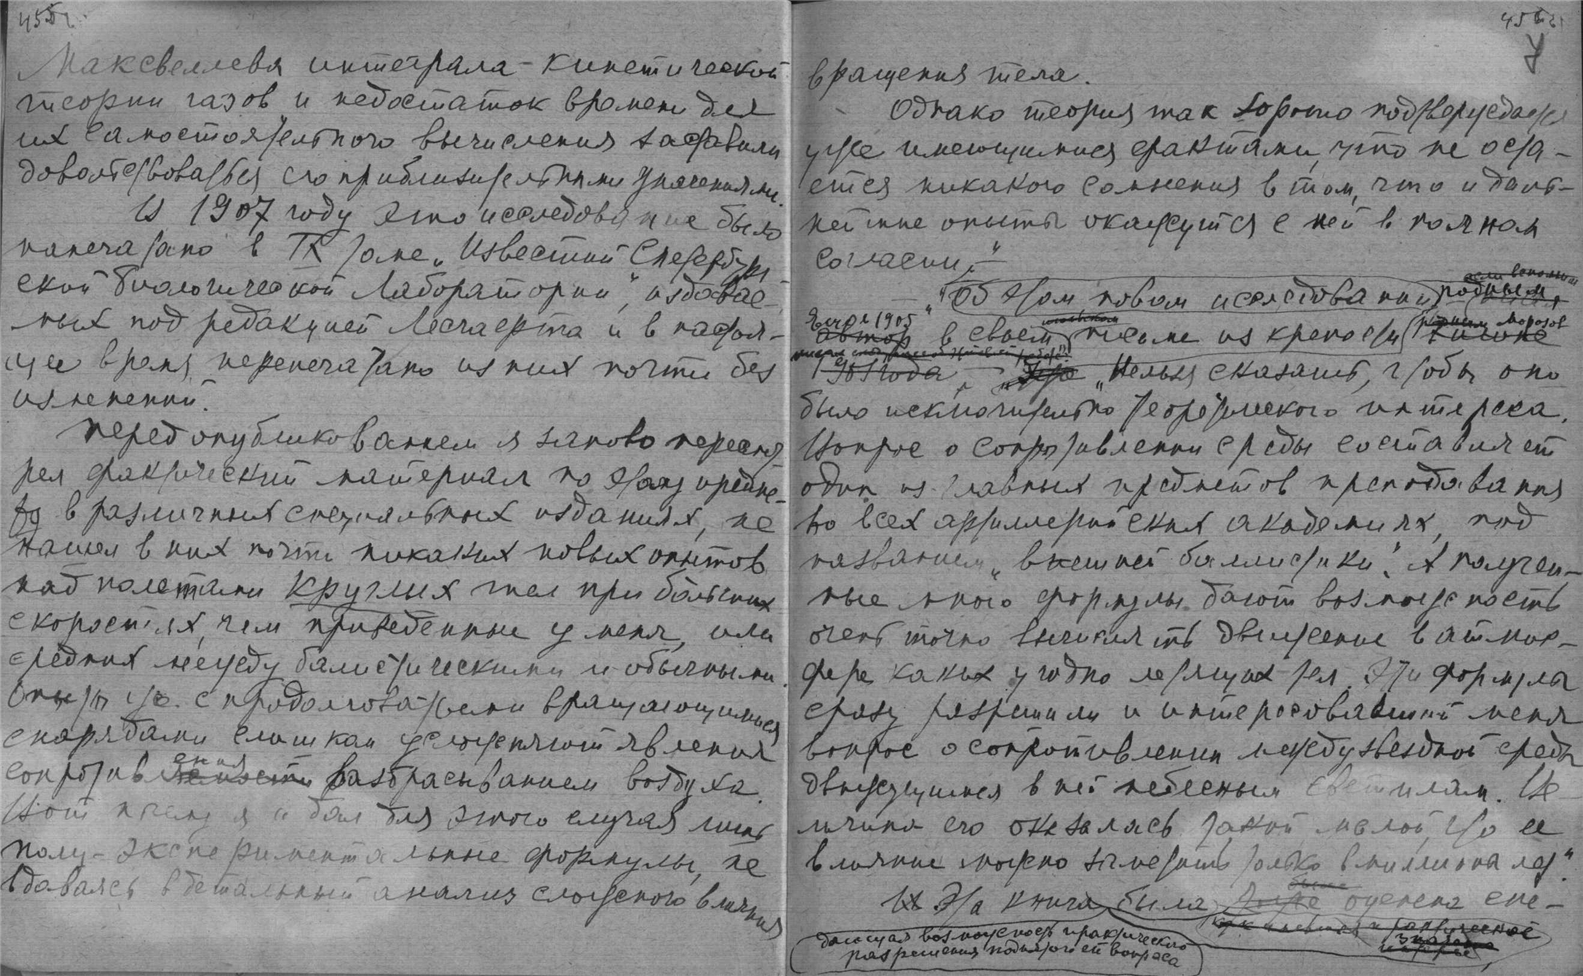 455
Максвеллева интеграла кинетической
теории газов и недостаток времени для
их самостоятельного вычисления заставили
довольствоваться его приблизительными значениями.
В 1907 году это исследование было
напечатано в IX томе „Известий С петербург
ской биологической Лаборатории", издавае-
мых под редакцией Лесгафта и в настоя-
щее время перепечатано из них почти без
изменений.
Перед опубликованием я заново пересмот
рел фактический материал по этому предме-
ту в различных специальных изданиях, не
нашел в них почти никаких новых опытов
над полетами круглых тел при больших
скоростях, чем приведенные у меня, или
средних между балистическими и обычными.
Опыты же с продолговатыми вращающимися
снарядами слишком усложняют явления
сопротивления разбрасыванием воздуха.
Вот почему я и дал для этого случая лишь
полу-экспериментальные формулы, не
вдаваясь в детальный анализ сложного влияния
456
7
вращения тела.
Однако теория так хорошо подтверждается
уже имеющимися фактами, что не оста-
ется никакого сомнения в том, что и даль-
нейшие опыты окажутся с ней в полном
согласии."
„Об этом новом исследовании родным
автор в своем письме из крепости
1905 года „Нельзя сказать, чтобы оно
было исключительно теоретического интереса.
Вопрос о сопротивлении среды составляет
один из главных предметов преподавания
во всех артиллерийских академиях, под
названием „внешней баллистики". А получен-
ные мною формулы дают возможность
очень точно вычислять движение в атмос-
фере каких угодно летящих тел. Эти формулы
сразу разрешили и интересовавший меня
вопрос о сопротивлении междузвездной среды
движущимся в ней небесным светилам. Ве-
личина его оказалась такой малой, что ее
влияние можно заметить только в миллиона лет."
Эта книга была оценена спе-
дающая возможность практического
разрешения поднятого ей вопроса